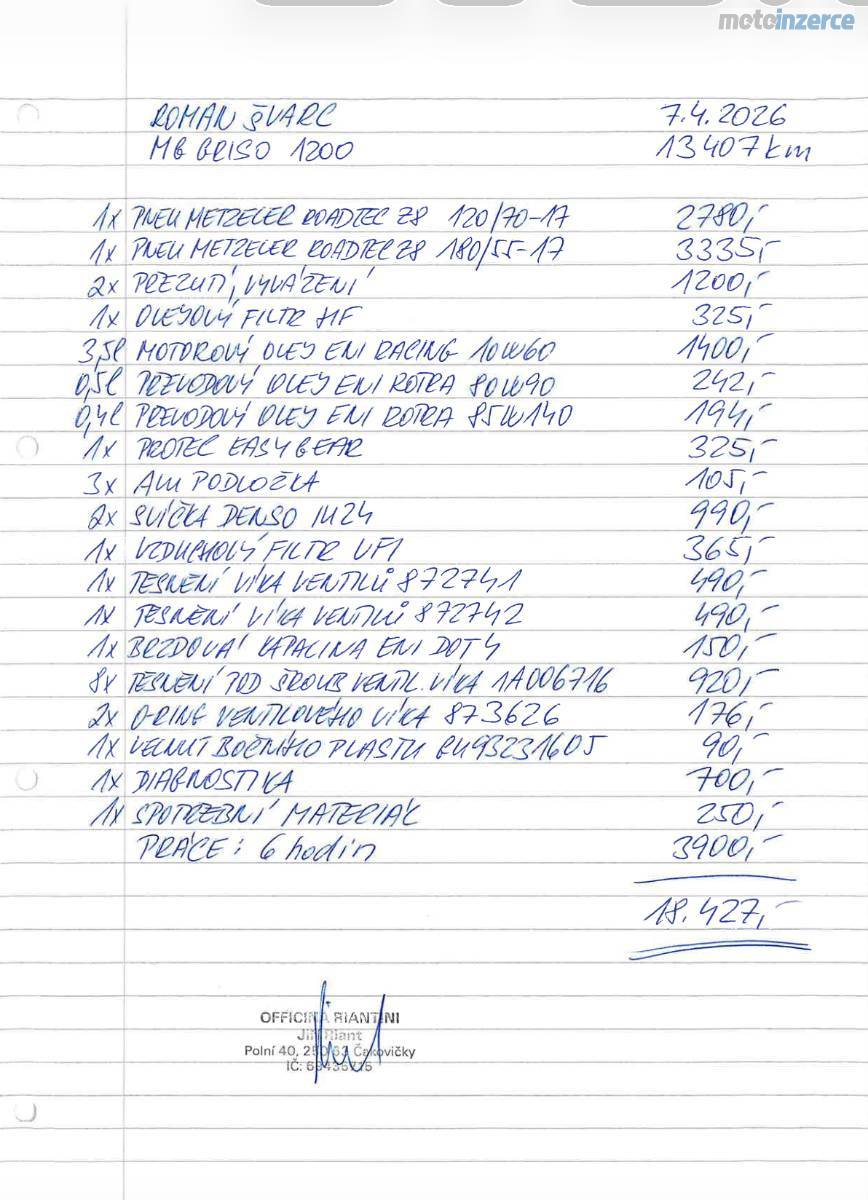 motoinzerce
ROMAN ŠVARC 7.4.2026
MG GRISO 1200 13407 km
1x PNEU METZELER ROADTEC Z8 120/70-17 2780,-
1x PNEU METZELER ROADTEC Z8 180/55-17 3335,-
2x PŘEZUTÍ, VYVÁŽENÍ 1200,-
1x OLEJOVÝ FILTR HF 325,-
3,5l MOTOROVÝ OLEJ ENI RACING 10W60 1400,-
0,5l PŘEVODOVÝ OLEJ ENI ROTRA 80W90 242,-
0,4l PŘEVODOVÝ OLEJ ENI ROTRA 85W140 194,-
1x PROTEC EASY GEAR 325,-
3x ALU PODLOŽKA 105,-
2x SVÍČKA DENSO IU24 990,-
1x VZDUCHOVÝ FILTR UFI 365,-
1x TESNĚNÍ VÍKA VENTILŮ 872741 490,-
1x TESNĚNÍ VÍKA VENTILŮ 872742 490,-
1x BRZDOVÁ KAPALINA ENI DOT4 150,-
8x TESNĚNÍ POD ŠROUB VENTIL. VÍKA 1A006716 920,-
2x O-RING VENTILOVÉHO VÍKA 873626 176,-
1x BOČNÍHO PLASTU GU93231605 90,-
1x DIAGNOSTIKA 700,-
1x SPOTŘEBNÍ MATERIÁL 250,-
PRÁCE: 6 hodin 3900,-
18.427,-
OFFICINA RIANTINI
Jiří Riant
Polní 40, 250 63 Čakovičky
IČ: